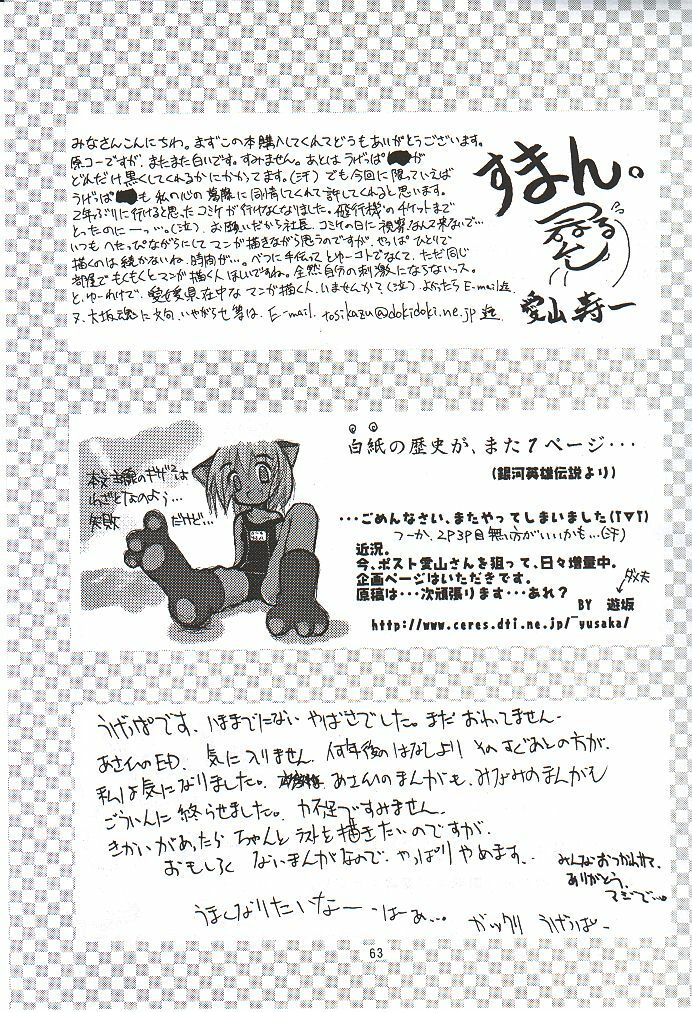 みなさんこんにちわ。まずこの本購入してくれてどうもありがとうございます。
原コーですが、またまた白いです。すみません。あとはうげっぱ が
どれだけ黒くしてくれるかにかかってます。(汗)でも今回に限っていえば
うげっぱ も私の心の葛藤に同情してくれて許してくれると思います。
2年ぶりに行けると思ったコミケが行けなくなりました。飛行機のチケットまで
とったのにーっ…。(泣)お願いだから社長、コミケの日に視察なんて来ないで…
いつもへせっぴながらにしてマンが描きながら思うのですが、やっぱひとりで
描くのは続かないね、時間が…。べつに手伝ってとゆーコトでなくて、ただ同じ
部屋でもくもくとマンが描く人ほしいですねぇ。全然自分の刺激にならないっス。
と、ゆーわけで、愛媛県在中なマンが描く人、いませんかて(泣)よかったらE-mail迄
又、大坂魂に文句、いやがらせ等は、E-mail. tosikazu@dokidoki.ne.jp 迄
すまん。
愛山寿一
白紙の歴史が、また1ページ・・・
(銀河英雄伝説より)
本文主線のギザギザは
失敗 だけど…
・・・ごめんなさい、またやってしまいました(T▽T)
つーか、2P3P目無い方がいいかも…(汗)
近況。
今、ポスト愛山さんを狙って、日々増量中。
企画ページはいただきです。
原稿は・・・次頑張ります・・・あれ?
ダメ夫
BY 遊坂
http://www.ceres.dti.ne.jp/~yusaka/
うげっぱです、いままでにないやばさでした。まだおわってません。
あさんのED、気に入りません。何年後のはなしより そのすぐあとの方が、
私は気になりました。 あさんのまんがも、みなみのまんがも
ごういんに終らせました。力不足ですみません。
きかいがあったらちゃんとラストを描きたいのですが、
おもしろくないまんがなので、やっぱりやめます。
みんなおつかれさて、
ありがとう。
マジで…。
うまくなりたいなー はーぁ…。 ガックリ うげっぱ
63